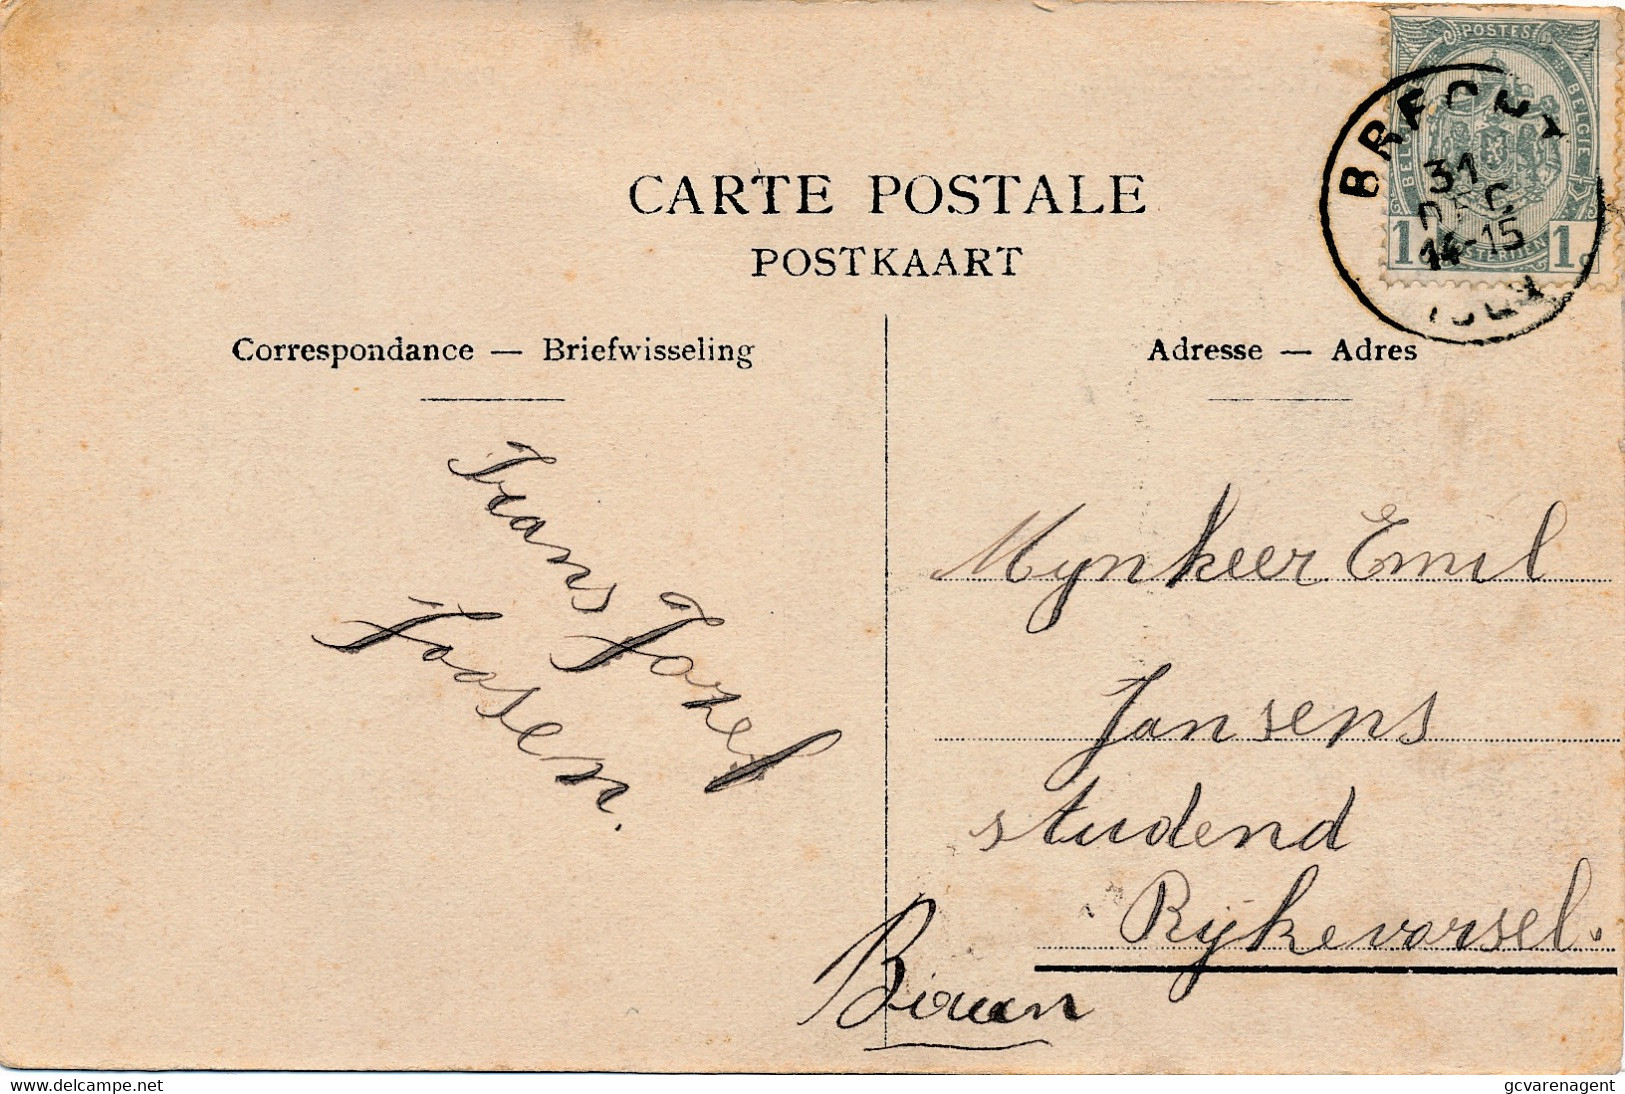 POSTES
BELGIQUE
BELGIE
POSTERIJEN
1c 1c
BRECHT
31
DEC
14-15
1909
CARTE POSTALE
POSTKAART
Correspondance — Briefwisseling
Adresse — Adres
Frans Jozef
Joosen.
Mynheer Emil
Jansens
studend
Rijkevorsel.
delcampe.net
gcvarenagent